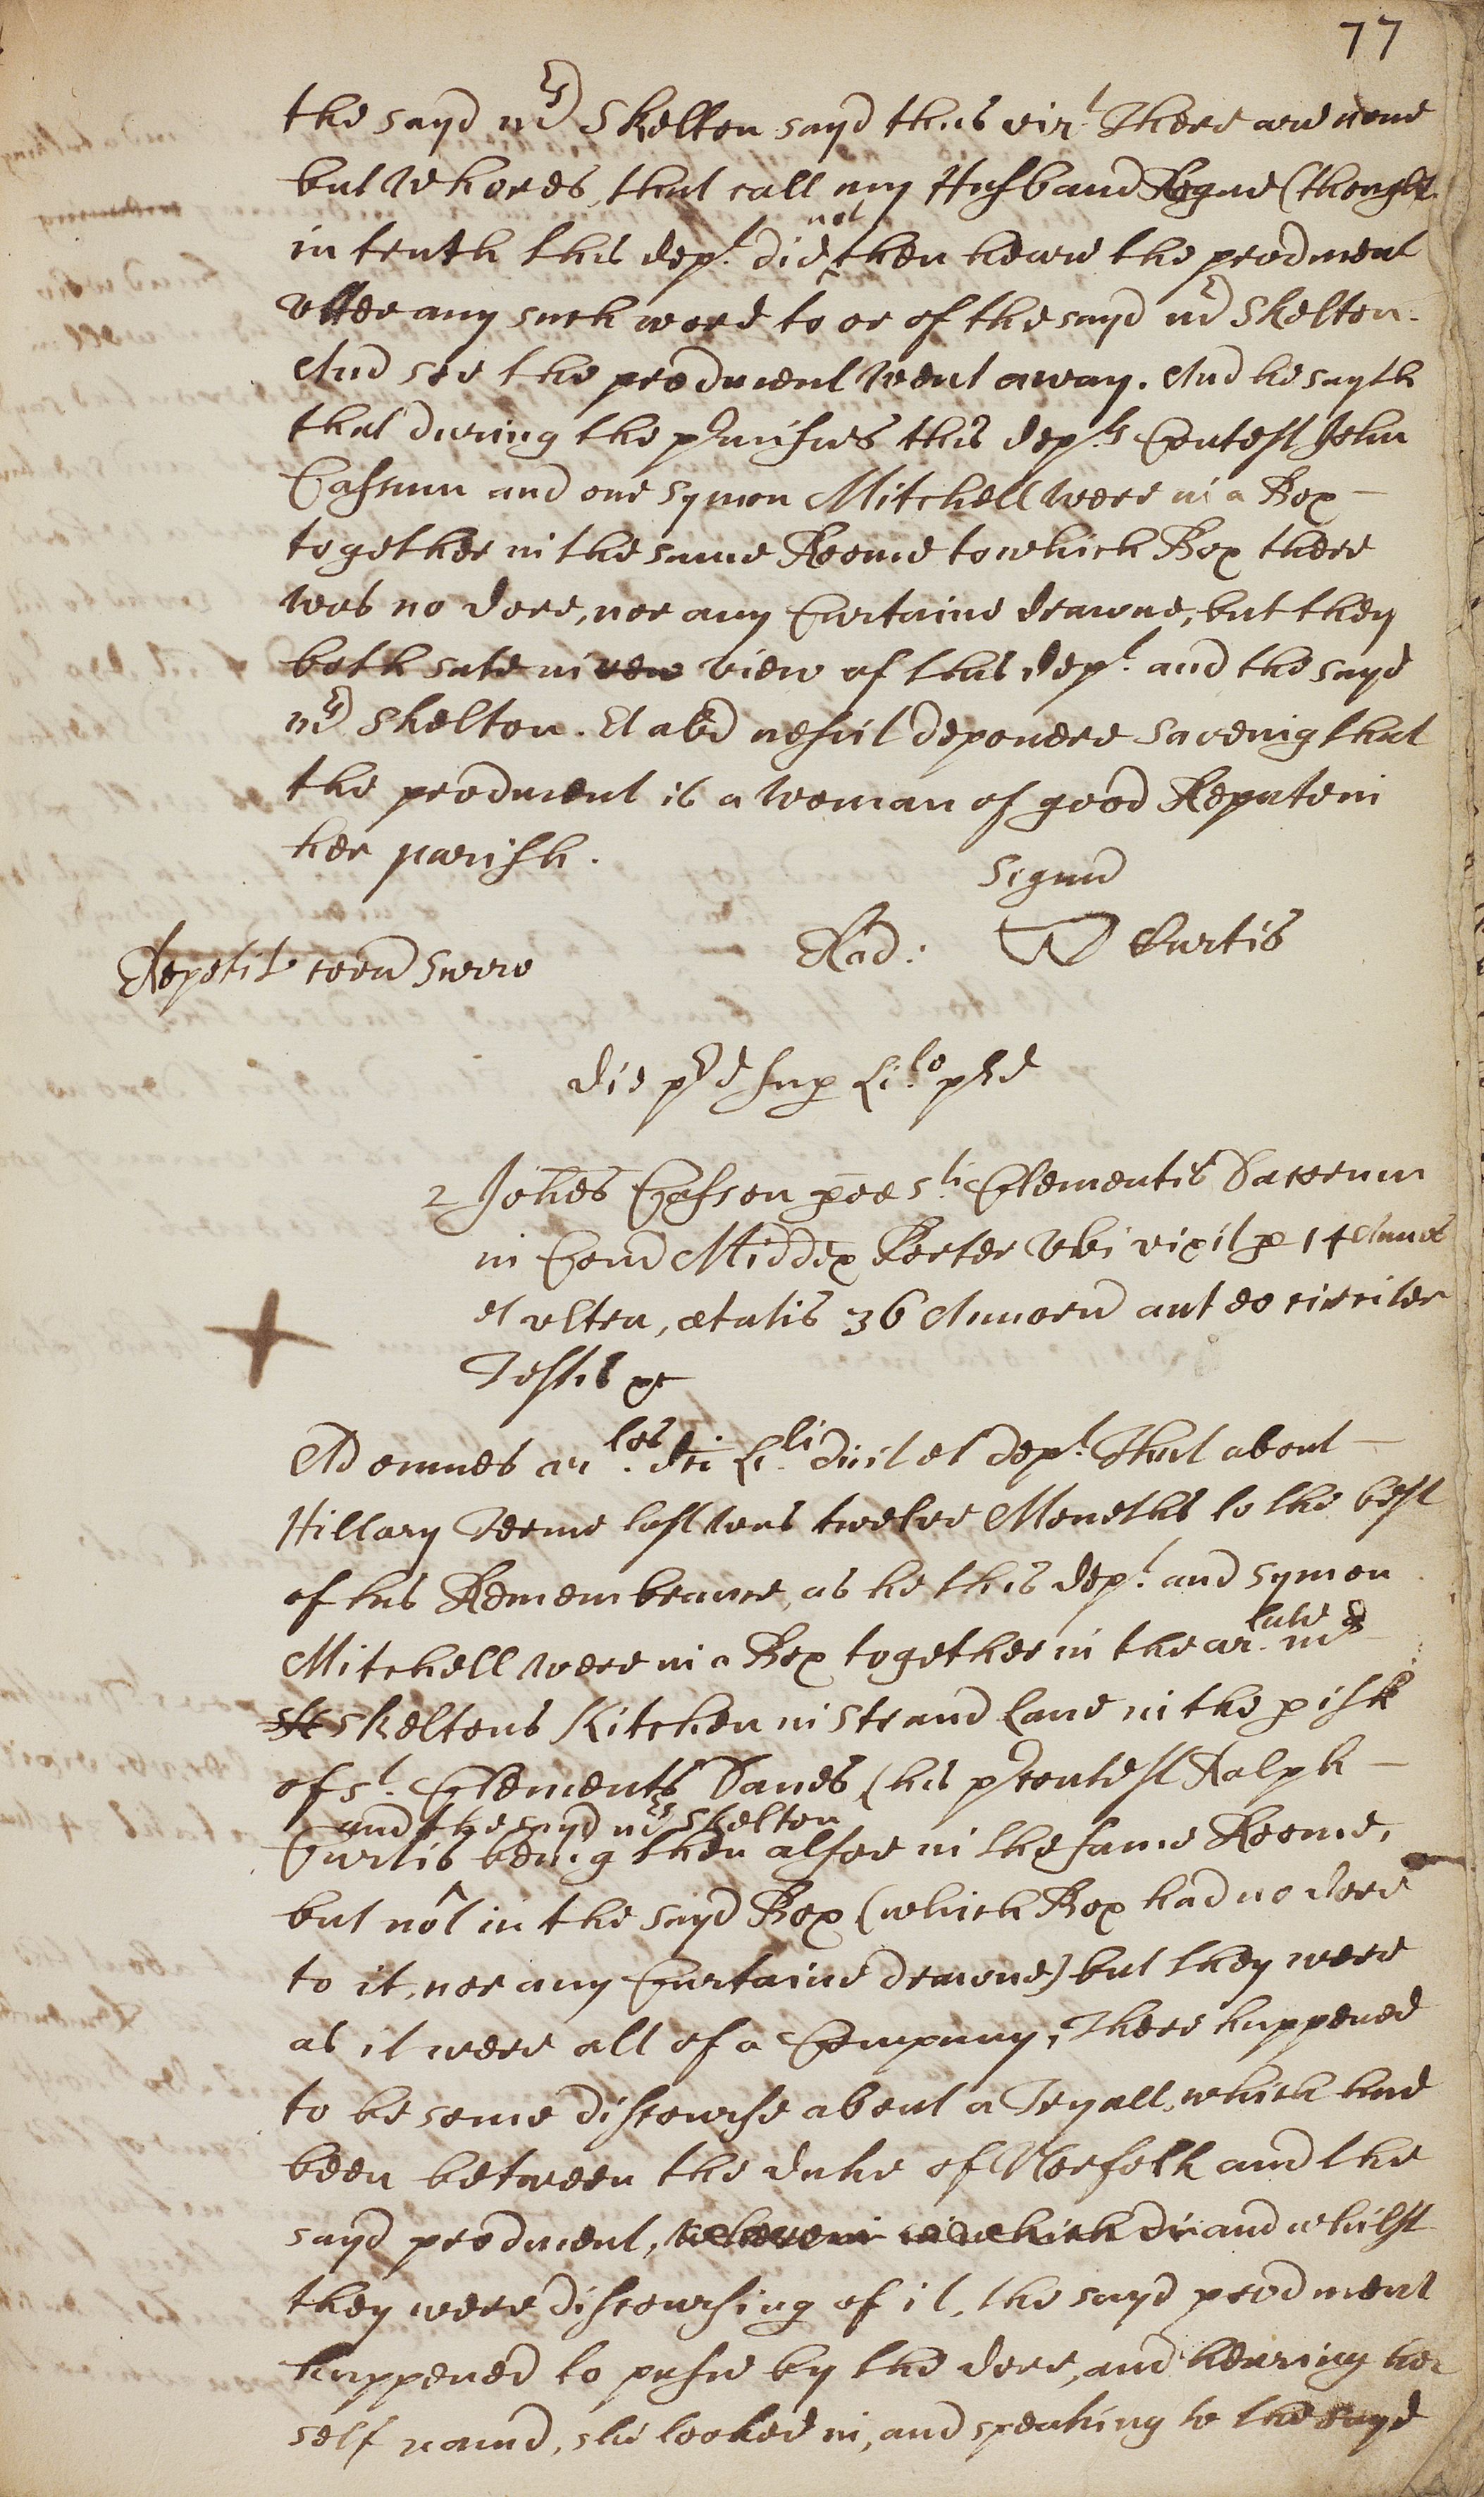 77
the sayd mrs Skelton sayd thus vizt There are none
but Whores, that call my Husband Rogue (thought
in truth this dept. did not then heare the producent
utter any such word to or of the sayd mr Skelton.
And soe the producent went away. And he sayth
that during the prmisses this depts Contest John
Casson and one Symon Mitchell were in a Box
together in the same Roome to which Box there
was no dore, nor any Curtaine drawne, but they
both sate in view of this dept. and the sayd
mrs Skelton. Et alr nescit deponere saveing that
the producent is a Woman of good Repute in
her parish.
Signum
Rad: Curtis
Repetit coram Surro
Die prd sup Lilo prd
2 Johes Casson poe sti Clementis Dacorum
in Com Middx Porter Ubi vixit p 14 Annos
et ultra, ætatis 36 Annoru aut eo circiter
Testis &c
Ad omnes arlos. dci Lli. dicit et dept. That about
Hillary Terme last was twelve Moneths to the best
of his Remembrance, as he this dept. and Symon
Mitchell were in a Box together in the arlate mrs
Skeltons Kitchen in Strand Lane in the pish
of St. Clements Danes (his prcontest Ralph
and the sayd mrs Skelton
Curtis being then alsoe in the same Roome,
but not in the sayd Box (which Box had no dore
to it, nor any Curtaine drawne) but they were
as it were all of a Company, There happened
to be some discourse about a Tryall, which had
been between the Duke of Norfolk and the
sayd producent, wherein in which di and whilst
they were discoursing of it, the sayd producent
happened to passe by the dore, and hearing her
self named, she looked in, and speaking to the sayd